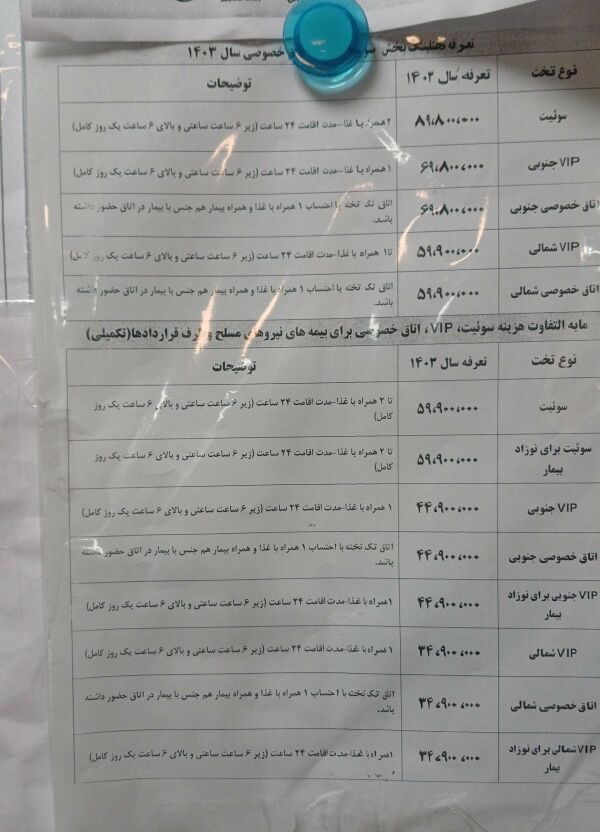 تعرفه هتلینگ بخش خصوصی سال ۱۴۰۳
نوع تخت تعرفه سال ۱۴۰۳ توضیحات
سوئیت ۸۹،۸۰۰،۰۰۰ ۲ همراه با غذا-مدت اقامت ۲۴ ساعت (زیر ۶ ساعت ساعتی و بالای ۶ ساعت یک روز کامل)
VIP جنوبی ۶۹،۸۰۰،۰۰۰ ۱ همراه با غذا-مدت اقامت ۲۴ ساعت (زیر ۶ ساعت ساعتی و بالای ۶ ساعت یک روز کامل)
اتاق خصوصی جنوبی ۶۹،۸۰۰،۰۰۰ اتاق تک تخته با احتساب ۱ همراه با غذا و همراه بیمار هم جنس با بیمار در اتاق حضور داشته
باشد.
VIP شمالی ۵۹،۹۰۰،۰۰۰ تا ۱ همراه با غذا-مدت اقامت ۲۴ ساعت (زیر ۶ ساعت ساعتی و بالای ۶ ساعت یک روز کامل)
اتاق خصوصی شمالی ۵۹،۹۰۰،۰۰۰ اتاق تک تخته با احتساب ۱ همراه با غذا و همراه بیمار هم جنس با بیمار در اتاق حضور داشته
باشد.
مابه التفاوت هزینه سوئیت، VIP، اتاق خصوصی برای بیمه های نیروهای مسلح و طرف قراردادها(تکمیلی)
نوع تخت تعرفه سال ۱۴۰۳ توضیحات
سوئیت ۵۹،۹۰۰،۰۰۰ تا ۲ همراه با غذا-مدت اقامت ۲۴ ساعت (زیر ۶ ساعت ساعتی و بالای ۶ ساعت یک روز
کامل)
سوئیت برای نوزاد
بیمار ۵۹،۹۰۰،۰۰۰ تا ۲ همراه با غذا-مدت اقامت ۲۴ ساعت (زیر ۶ ساعت ساعتی و بالای ۶ ساعت یک روز
کامل)
VIP جنوبی ۴۴،۹۰۰،۰۰۰ ۱ همراه با غذا-مدت اقامت ۲۴ ساعت (زیر ۶ ساعت ساعتی و بالای ۶ ساعت یک روز کامل)
اتاق خصوصی جنوبی ۴۴،۹۰۰،۰۰۰ اتاق تک تخته با احتساب ۱ همراه با غذا و همراه بیمار هم جنس با بیمار در اتاق حضور داشته
باشد.
VIP جنوبی برای نوزاد
بیمار ۴۴،۹۰۰،۰۰۰ ۱ همراه با غذا-مدت اقامت ۲۴ ساعت (زیر ۶ ساعت ساعتی و بالای ۶ ساعت یک روز کامل)
VIP شمالی ۳۴،۹۰۰،۰۰۰ ۱ همراه با غذا-مدت اقامت ۲۴ ساعت (زیر ۶ ساعت ساعتی و بالای ۶ ساعت یک روز کامل)
اتاق خصوصی شمالی ۳۴،۹۰۰،۰۰۰ اتاق تک تخته با احتساب ۱ همراه با غذا و همراه بیمار هم جنس با بیمار در اتاق حضور داشته
باشد.
VIP شمالی برای نوزاد
بیمار ۳۴،۹۰۰،۰۰۰ ۱ همراه با غذا-مدت اقامت ۲۴ ساعت (زیر ۶ ساعت ساعتی و بالای ۶ ساعت یک روز کامل)